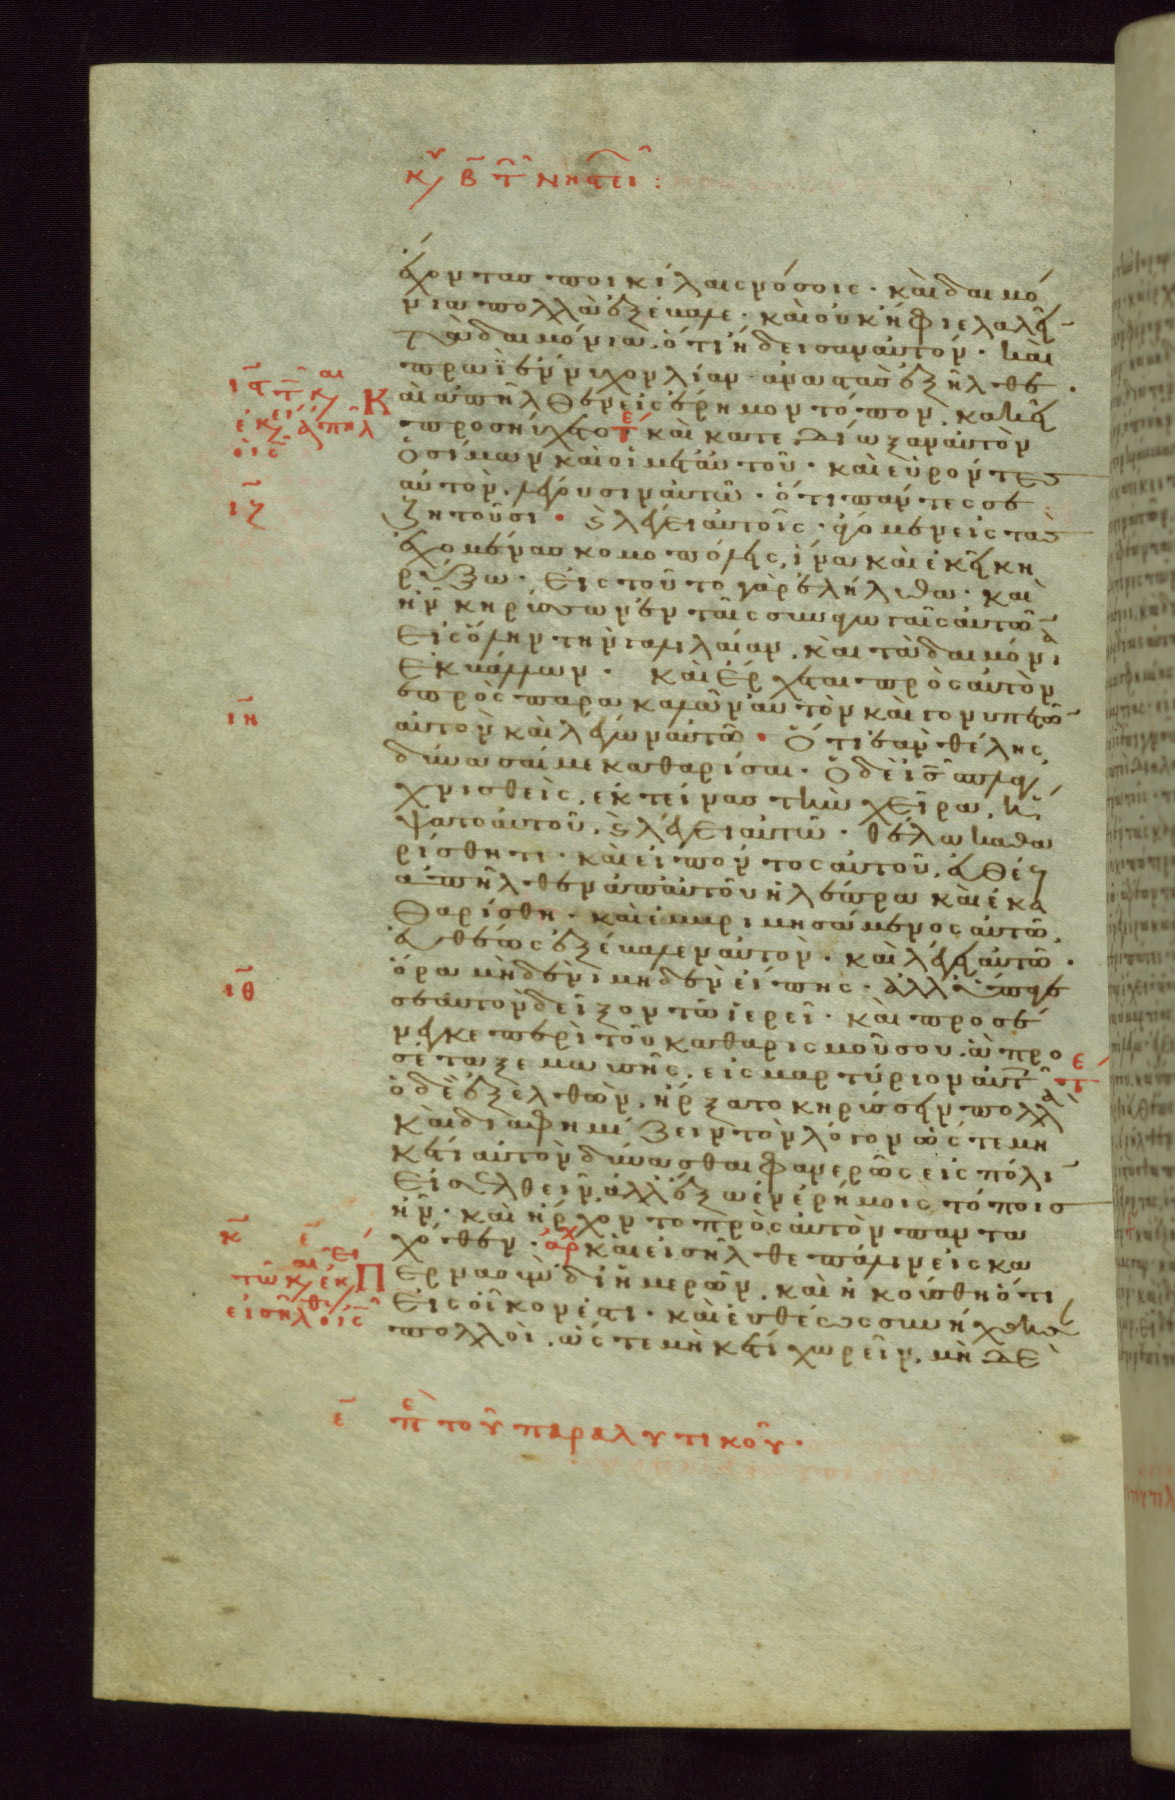 κυ β τ νηστει:
ἔχοντας ποικίλαις νόσοις· καὶ δαιμό
νια πολλὰ ἐξέβαλε· καὶ οὐκ ἤφιε λαλεῖ̄
τὰ δαιμόνια, ὅτι ἤδεισαν αὐτόν· καὶ
πρωῒ ἔννυχον λίαν ἀναστὰς ἐξῆλθε.
Καὶ ἀπῆλθεν εἰς ἔρημον τόπον, κακεῖ
προσηύχετο τε καὶ κατεδίωξαν αὐτὸν
ὁ σίμων καὶ οἱ μετ αὐτοῦ· καὶ εὑρόντες
αὐτόν, λέγουσιν αὐτῶ· ὅτι πάντες σε
ζητοῦσι· καὶ λέγει αὐτοῖς· ἄγομεν εἰς τὰς
ἐχομένας κομοπόλεις, ἵνα καὶ ἐκεῖ κη
ρύξω· εἰς τοῦτο γὰρ ἐλήλυθα· καὶ
ἦν κηρύσσων ἐν ταῖς συναγωγαῖς αὐτῶ̄
εἰς ὅλην τὴν γαλιλαίαν, καὶ τὰ δαιμόνια
ἐκβάλλων· καὶ ἔρχεται πρὸς αὐτὸν
λεπρὸς παρακαλῶν αὐτὸν καὶ γονυπετῶ̄
αὐτὸν καὶ λέγων αὐτῶ· ὅτι ἐὰν θέλης
δύνασαί με καθαρίσαι· ὁ δὲ ις σπλαγ
χνισθεὶς, ἐκτείνας τὴν χεῖρα, ἥ
ψατο αὐτοῦ, καὶ λέγει αὐτῶ· θέλω καθα
ρίσθητι· καὶ εἰπόντος αὐτοῦ, εὐθέως
ἀπῆλθεν ἀπ αὐτοῦ ἡ λέπρα καὶ ἐκα
θαρίσθη· καὶ ἐμβριμησάμενος αὐτῶ,
εὐθέως ἐξέβαλεν αὐτόν· καὶ λέγει αὐτῶ·
ὅρα μηδενὶ μηδὲν εἴπης· ἀλλ ὕπαγε
σεαυτὸν δεῖξον τῶ ἱερεῖ· καὶ προσέ
νεγκε περὶ τοῦ καθαρισμοῦ σου, ἃ προ
σέταξε μωσῆς, εἰς μαρτύριον αὐτ τε
ὁ δὲ ἐξελθὼν, ἤρξατο κηρύσσειν πολλὰ
καὶ διαφημίζειν τὸν λόγον ὥστε μη
κέτι αὐτὸν δύνασθαι φανερῶς εἰς πόλῑ
εἰσελθεῖν, ἀλλ ἔξω ἐν ἐρήμοις τόποις
ἦν· καὶ ἤρχοντο πρὸς αὐτὸν πανταχό
χόθεν· αρχ καὶ εἰσῆλθε πάλιν εἰς κα
Περναοὺμ δι ἡμερῶν, καὶ ἠκούσθη ὅτι
εἰς οἶκον ἐστι· καὶ εὐθέως συνήχθησαν
πολλοὶ, ὥστε μηκέτι χωρεῖν, μὴ δὲ
ιζ
ιη
ιθ
κ
ε πε τοῦ παραλυτικοῦ·